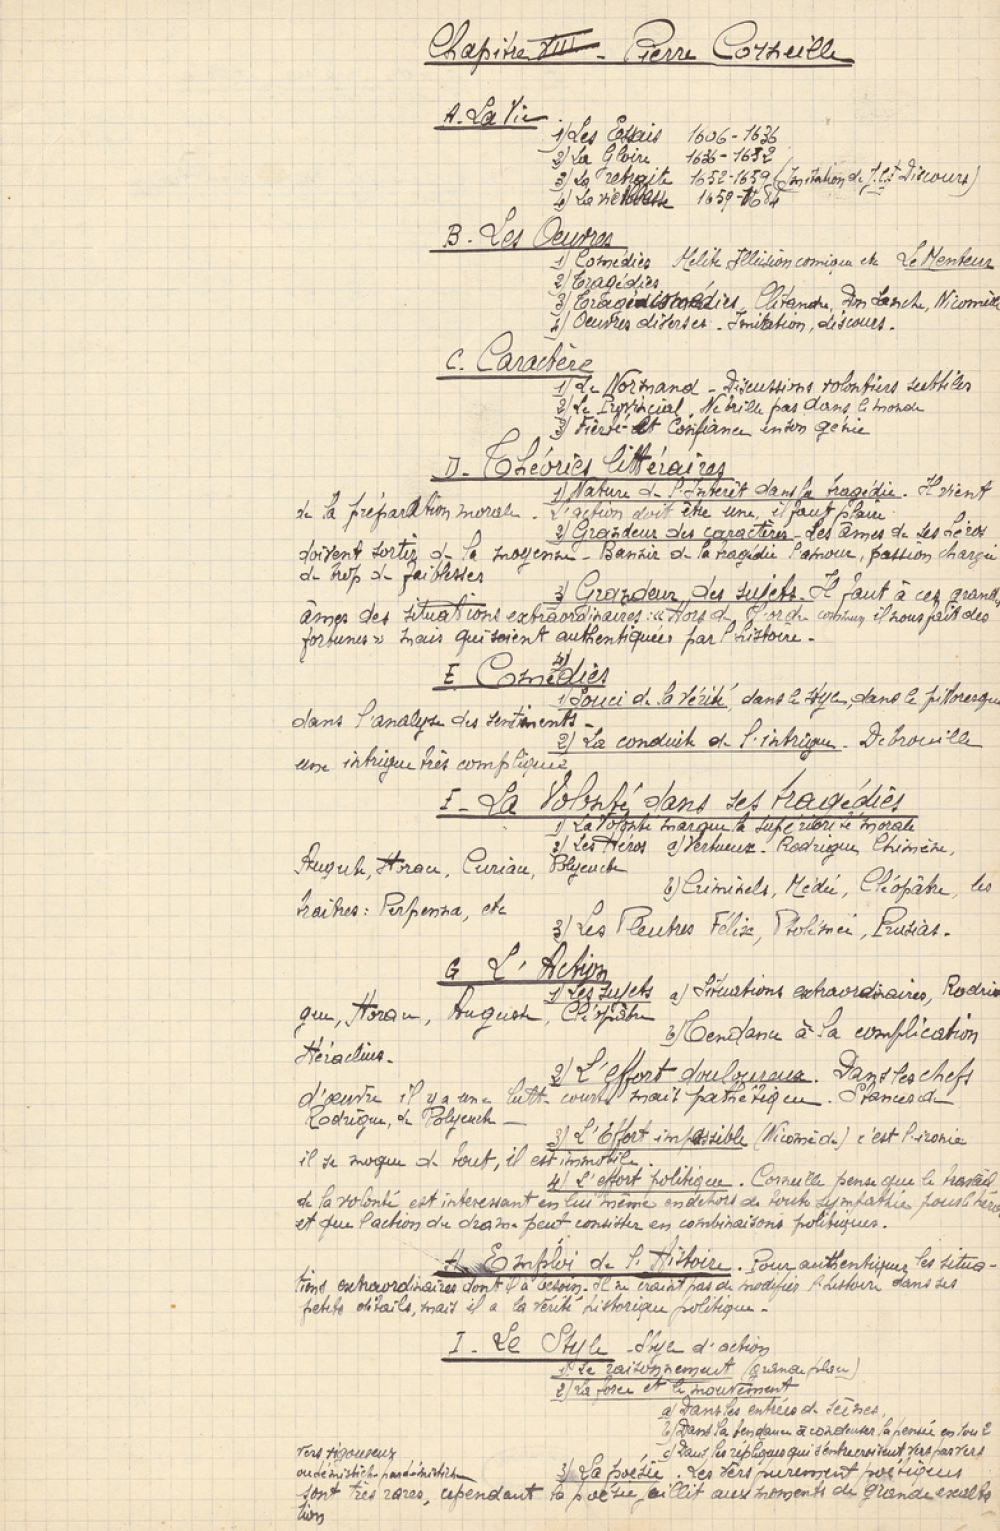 Chapitre XIII - Pierre Corneille
A. La Vie
1) Les Essais 1606-1636
2) La Gloire 1636-1652
3) La retraite 1652-1659 (Imitation de J.Ct Discours)
4) La vieillesse 1659-1684
B. Les Oeuvres
1) Comédies Mélite Illusion comique etc Le Menteur
2) Tragédies
3) Tragédicomédies, Clitandre, Don Sanche, Nicomède
4) Oeuvres diverses. Imitation, discours.
C. Caractère
1) Le Normand - Discussions volontiers subtiles
2) Le Provincial. Ne brille pas dans le monde
3) Fierté et Confiance en son génie
D. Théories littéraires
1) Nature de l'Intérêt dans la tragédie. Il vient
de la préparation morale. L'action doit être une, il faut plaire
2) Grandeur des caractères. Les âmes de ses héros
doivent sortir de la moyenne - Bannir de la tragédie l'amour, passion chargée
de trop de faiblesses
3) Grandeur des sujets. Il faut à ces grandes
âmes des situations extraordinaires : « Hors de l'ordre commun il nous fait des
fortunes » mais qui soient authentiquées par l'histoire.
E Comédies
1) Souci de la vérité dans le style, dans le pittoresque
dans l'analyse des sentiments.
2) La conduite de l'intrigue. Débrouille
une intrigue très compliquée
F - La Volonté dans ses tragédies
1) La Volonté marque la supériorité morale
2) Les Héros a) Vertueux. Rodrigue, Chimène,
Auguste, Horace, Curiace, Polyeucte
b) Criminels, Médée, Cléopâtre, les
traîtres : Perpenna, etc
3) Les Pleutres Félix, Ptolémée, Prusias.
G L'Action
1) Les sujets a) Situations extraordinaires, Rodri
gue, Horace, Auguste, Cléopâtre
b) Tendance à la complication
Héraclius.
2) L'effort douloureux. Dans les chefs
d'œuvre il y a une lutte courte mais pathétique. Stances de
Rodrigue, de Polyeucte
3) L'Effort impassible (Nicomède) c'est l'ironie
il se moque de tout, il est immobile.
4) L'effort politique. Corneille pense que le travail
de la volonté est intéressant en lui même en dehors de toute sympathie pour le héros
et que l'action du drame peut consister en combinaisons politiques.
H. Emploi de l'Histoire. Pour authentiquer les situa-
tions extraordinaires dont il a besoin. Il ne craint pas de modifier l'histoire dans ses
petits détails, mais il a la vérité historique politique.
I. Le Style - Style d'action
1) Le raisonnement (grande place)
2) La force et le mouvement
a) Dans les entrées de scènes,
b) Dans la tendance à condenser la pensée en un
vers vigoureux
c) Dans les répliques qui s'entrecroisent vers par vers
ou hémistiche par hémistiche
3) La poésie. Les vers purement poétiques
sont très rares, cependant la poésie jaillit aux moments de grande exalta
tion